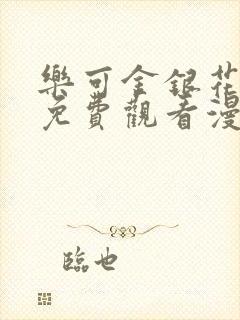 樂可金銀花
免費觀看漫
臨也